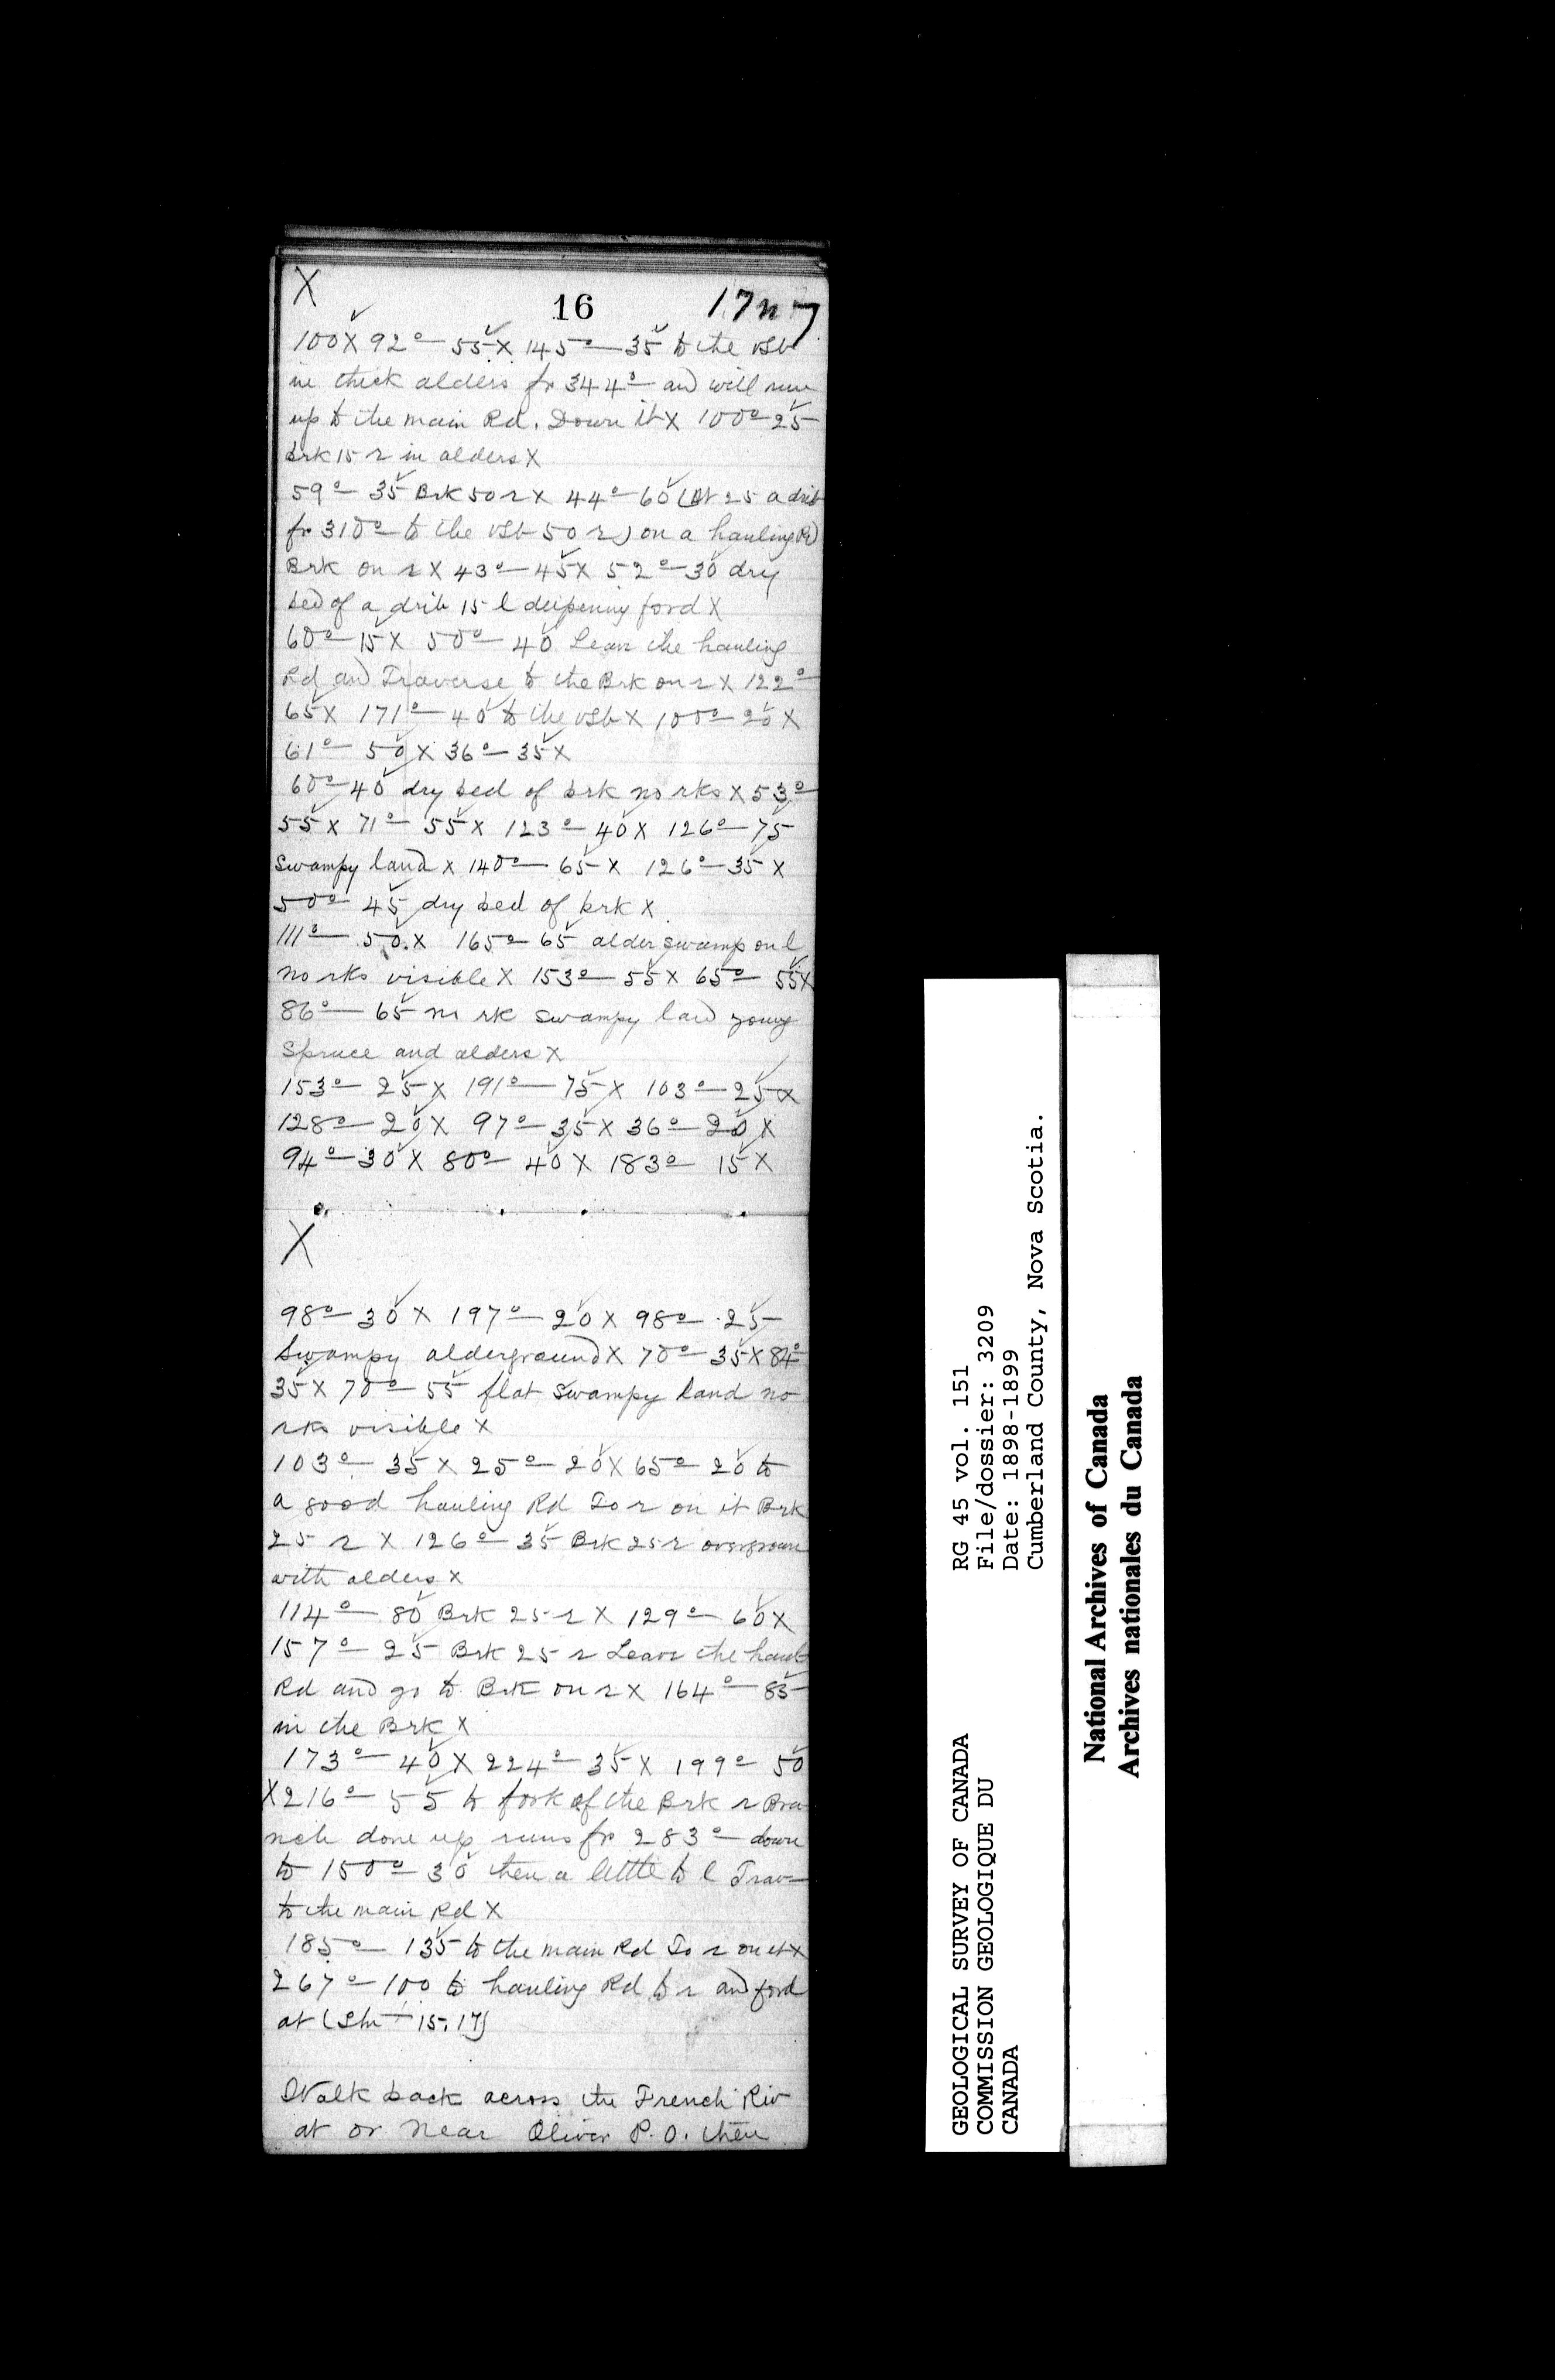 X
16
17
100 X 92° — 55 X 145° — 35 to the vSb
in thick alders fr 344° — and will run
up to the main Rd. Down it X 100° — 25
brk 15 r in alders X
59° — 35 Brk 50 r X 44° — 60 (At 25 a drib
fr 310° — to the vSb 50 r) on a hauling Rd
Brk on r X 43° — 45 X 52° — 30 dry
bed of a drib 15 l deepening ford X
60° — 15 X 50° — 40 Leave the hauling
Rd and Traverse to the Brk on r X 122° —
65 X 171° — 40 to the vSb X 100° — 20 X
61° — 50 X 36° — 35 X
60° — 40 dry bed of brk no rks X 53° —
55 X 71° — 55 X 123° — 40 X 126° — 75
Swampy land X 140° — 65 X 126° — 35 X
50° 45 dry bed of brk X
111° — 50. X 165° — 65 alder swamp on l
no rks visible X 153° — 55 X 65° — 55 X
86° — 65 no rk swampy land young
Spruce and alders X
153° — 25 X 191° — 75 X 103° — 25 X
128° — 20 X 97° — 35 X 36° — 20 X
94° — 30 X 80° — 40 X 183° — 15 X
X
98° — 30 X 197° — 20 X 98° — 25
Swampy alderground X 70° — 35 X 84°
35 X 70° — 55 flat swampy land no
rks visible X
103° — 35 X 25° — 20 X 65° — 20 to
a good hauling Rd To r on it Brk
25 r X 126° — 35 Brk 25 r overgrown
with alders X
114° — 80 Brk 25 r X 129° — 60 X
157° — 25 Brk 25 r Leave the haul
Rd and go to Brk on r X 164° — 85
in the Brk X
173° — 40 X 224° — 35 X 199° — 50
X 216° — 55 to fork of the Brk r Bra
nch done up runs fr 283° — down
to 150° — 30 then a little to l Trav —
to the main Rd X
185° — 135 to the main Rd To r on it X
267° — 100 to hauling Rd to r and ford
at (Sht — 15, 17)
Walk back across the French Riv
at or near Oliver P. O. then
RG 45 vol. 151
File/dossier: 3209
Date: 1898-1899
Cumberland County, Nova Scotia.
GEOLOGICAL SURVEY OF CANADA
COMMISSION GEOLOGIQUE DU
CANADA
National Archives of Canada
Archives nationales du Canada